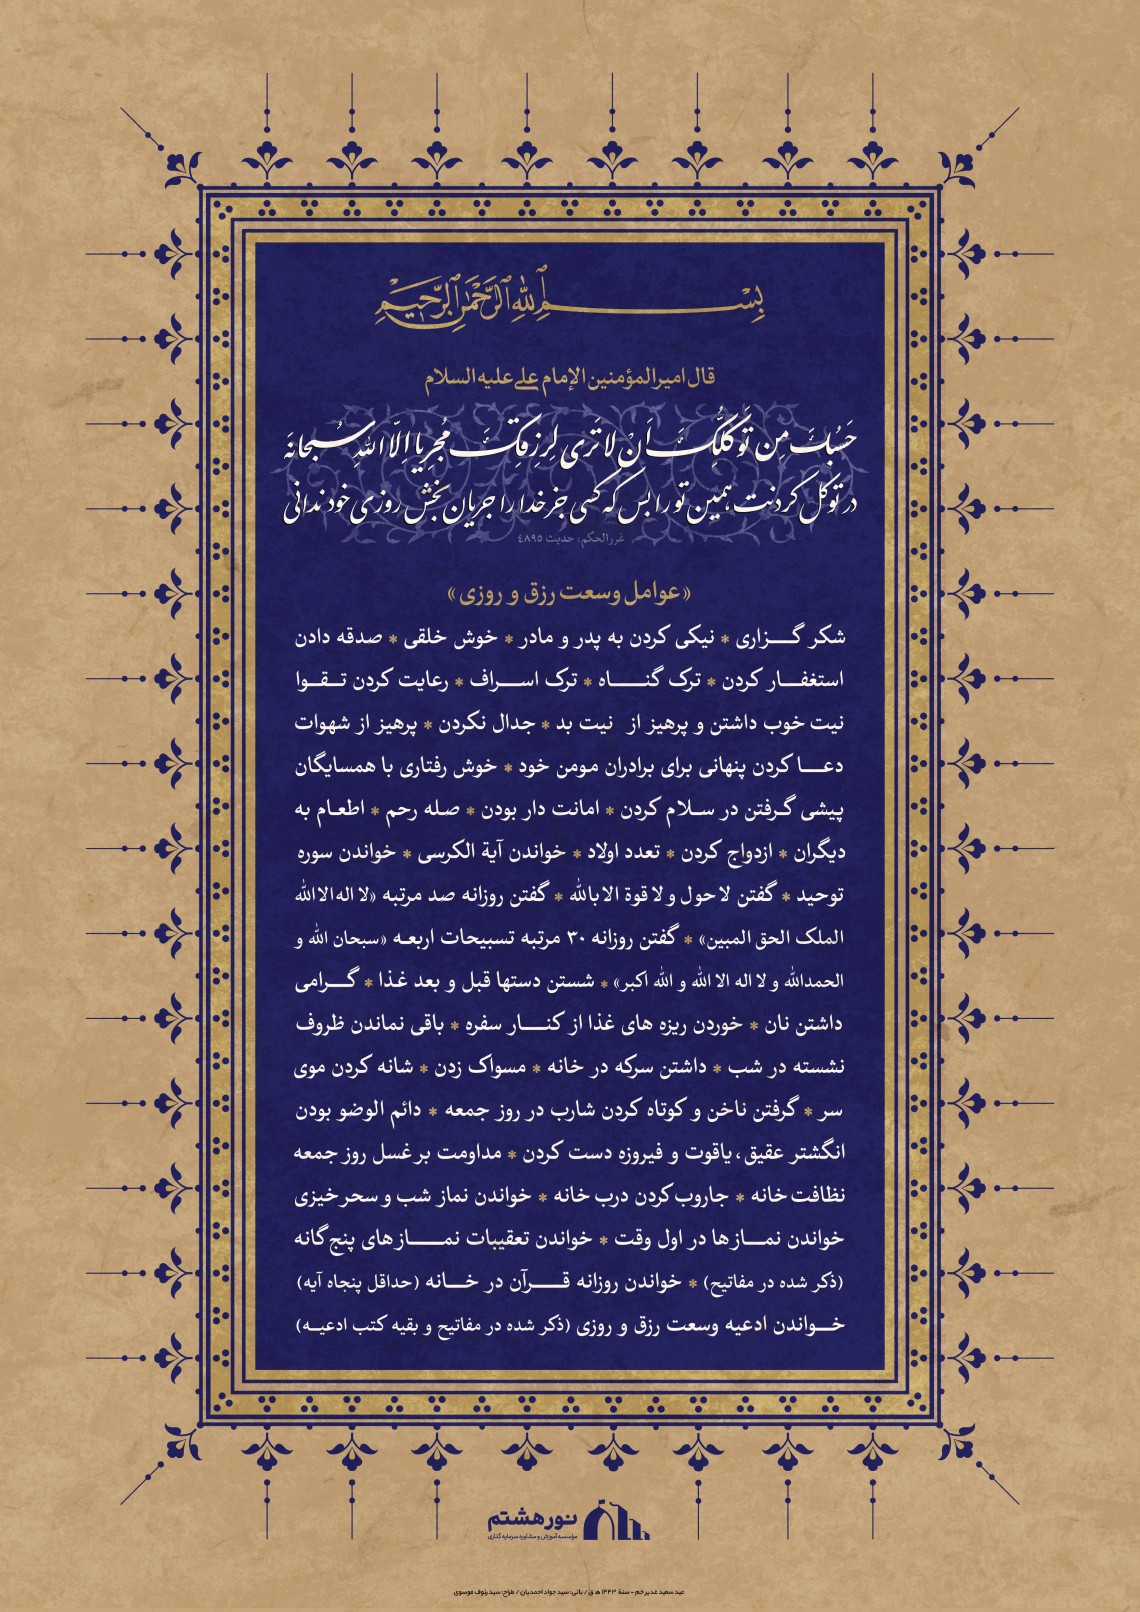 بسم الله الرحمن الرحیم
قال امیرالمؤمنین الإمام علي علیه السلام
حَسْبُكَ مِن تَوَكُّلِكَ اَنْ لا تَرى لِرِزقِكَ مُجرِيا اِلّا اللهِ سُبحانَهَ
در توکل کردنت، همین تو را بس که کسی جز خدا را جریان بخش روزی خود ندانی
غررالحکم: حدیث ٤٨٩٥
«عوامل وسعت رزق و روزی»
شکر گــــزاری * نیکی کردن به پدر و مادر * خوش خلقی * صدقه دادن
استغفــار کردن * ترک گنـــــاه * ترک اســـراف * رعایت کردن تــقــوا
نیت خوب داشتن و پرهیز از نیت بد * جدال نکردن * پرهیز از شهوات
دعـــا کردن پنهانی برای برادران مومن خود * خوش رفتاری با همسایگان
پیشی گـرفتن در سـلام کردن * امانت دار بودن * صله رحم * اطعـام به
دیگران * ازدواج کردن * تعدد اولاد * خواندن آیة الکرسی * خواندن سوره
توحید * گفتن لا حول و لا قوة الا بالله * گفتن روزانه صد مرتبه «لا اله الا الله
الملک الحق المبین» * گفتن روزانه ۳۰ مرتبه تسبیحات اربعـه «سبحان الله و
الحمدالله و لا اله الا الله و الله اکبر» * شستن دستها قبل و بعد غـذا * گـــرامی
داشتن نان * خوردن ریزه های غذا از کنـــار سفره * باقی نماندن ظروف
نشسته در شب * داشتن سرکه در خانه * مسواک زدن * شانه کردن موی
سر * گرفتن ناخن و کوتاه کردن شارب در روز جمعه * دائم الوضو بودن
انگشتر عقیق، یاقوت و فیروزه دست کردن * مداومت بر غسل روز جمعه
نظافت خانه * جاروب کردن درب خانه * خواندن نماز شب و سحر خیزی
خواندن نمـــازها در اول وقت * خواندن تعقیبات نمـــــازهای پنج گانه
(ذکر شده در مفاتیح) * خواندن روزانه قــــرآن در خـــانه (حداقل پنجاه آیه)
خـــواندن ادعیه وسعت رزق و روزی (ذکر شده در مفاتیح و بقیه کتب ادعیــه)
نور هشتم
مؤسسه آموزش و مشاوره سرمایه گذاری
عید سعید غدیر خم - سنة ۱۴۴۳ هـ ق / بانی: سید جواد احمدیان / طراح: سید رئوف موسوی